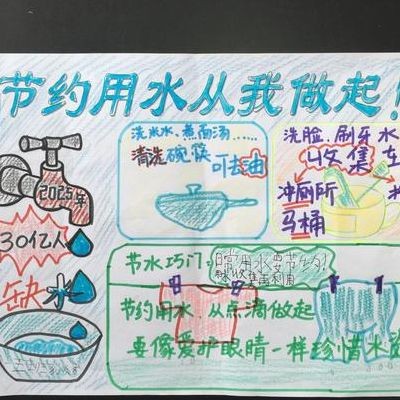 节约用水从我做起!
洗米水、煮面汤……
清洗碗筷
可去油
洗脸、刷牙水
收集
冲厕所
马桶
2025年
30亿人
缺水
节水巧门:
日常用水要节约!
节约用水,从点滴做起
要像爱护眼睛一样珍惜水资